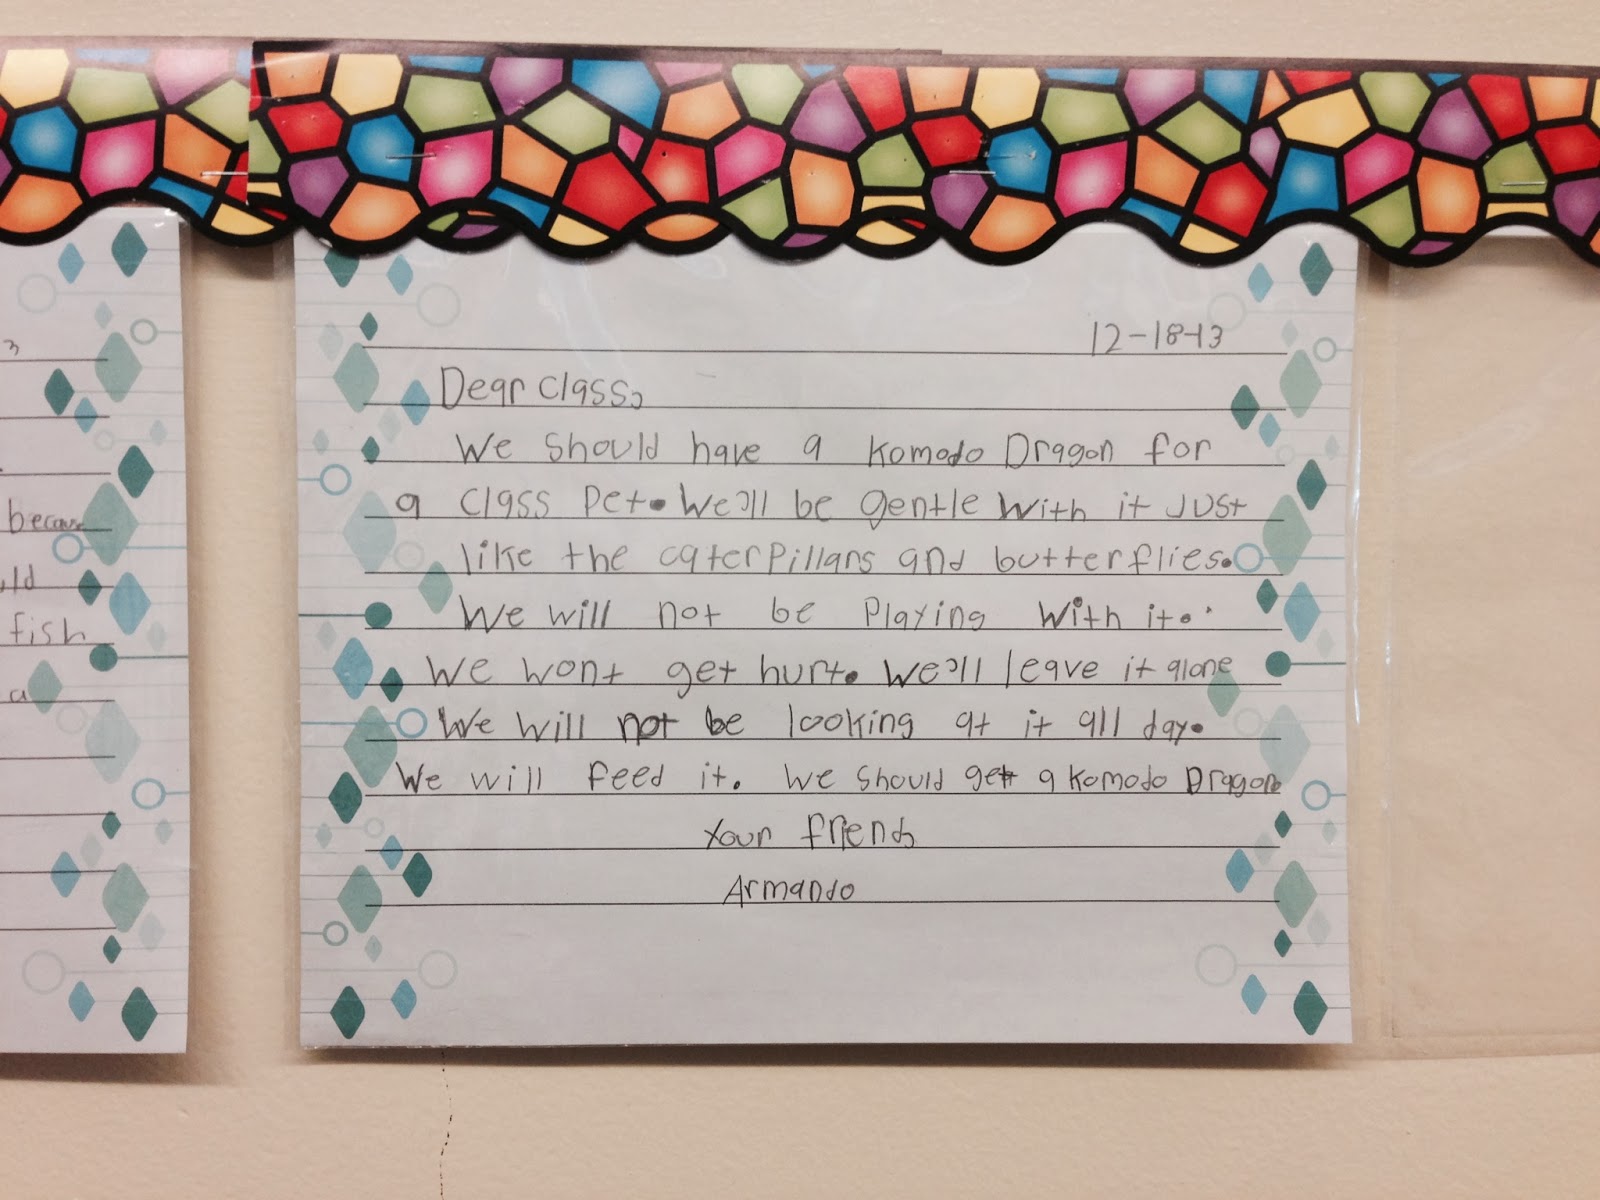 3
because
uld
fish
a
12-18-13
Dear Class,
We Should have a Komodo Dragon for
a Class Pet. We'll be gentle With it JUSt
like the caterPillars and butterflies.
We will not be Playing With it.
We wont get hurt. We'll leave it alone
We Will not be looking at it all day.
We will Feed it. We Should get a Komodo Dragon.
Your friends
Armando